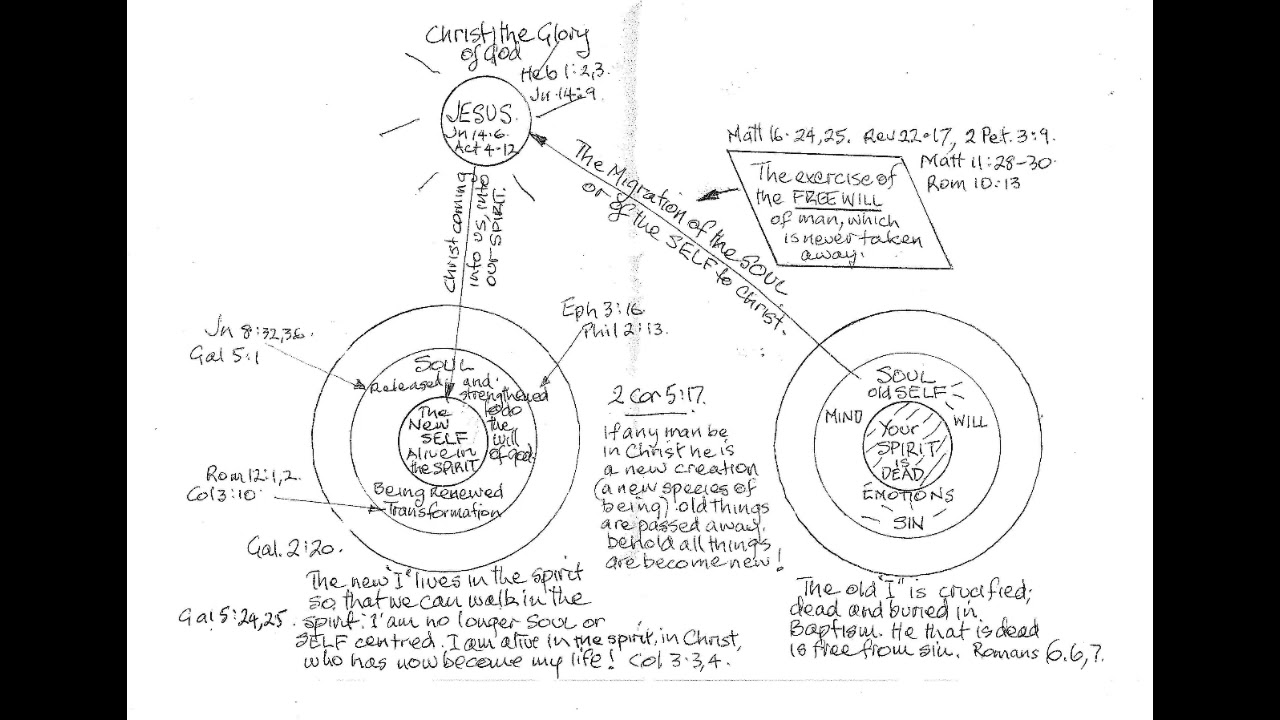 Christ, the Glory
of God
Heb 1:2,3.
Jn 14:9
JESUS.
Jn 14.6.
Act 4.12
Christ coming
into us, into
our SPIRIT.
The Migration of the SOUL
or of the SELF to Christ.
Matt 16.24,25. Rev 22.17, 2 Pet. 3:9.
Matt 11:28-30.
Rom 10:13
The exercise of
the FREE WILL
of man, which
is never taken
away.
Jn 8:32,36.
Gal 5:1
Eph 3:16
Phil 2:13.
SOUL
Released and
strengthened
to do
the
will
of God.
The
New
SELF
Alive in
the SPIRIT
Being Renewed
Transformation
Rom 12:1,2.
Col 3:10.
Gal. 2:20.
The new "I" lives in the spirit
so that we can walk in the
Gal 5:24,25. spirit. I am no longer SOUL or
SELF centred. I am alive in the spirit, in Christ,
who has now become my life! Col 3:3,4.
2 Cor 5:17.
If any man be
in Christ he is
a new creation
(a new species of
being) old things
are passed away,
behold all things
are become new!
SOUL
old SELF
MIND
WILL
Your
SPIRIT
is
DEAD
EMOTIONS
SIN
The old "I" is crucified;
dead and buried in
Baptism. He that is dead
is free from sin. Romans 6.6,7.